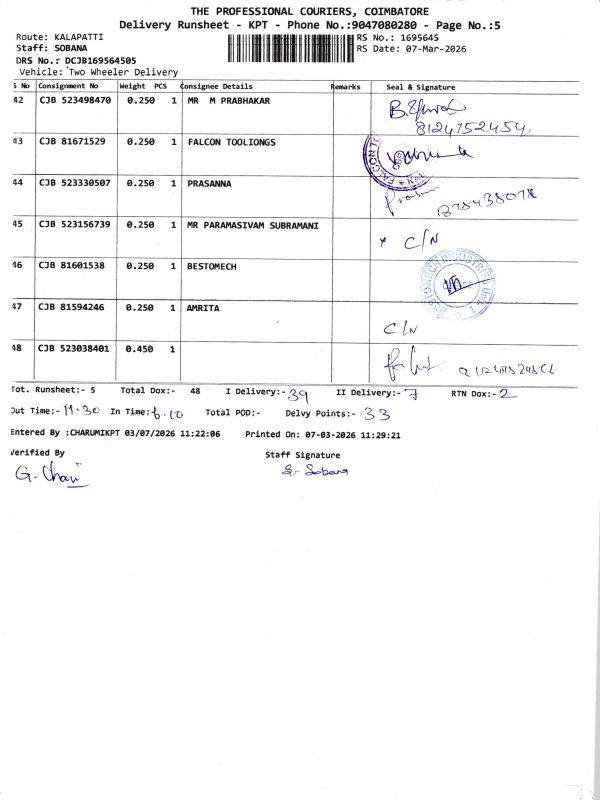 THE PROFESSIONAL COURIERS, COIMBATORE
Delivery Runsheet - KPT - Phone No.:9047080280 - Page No.:5
Route: KALAPATTI RS No.: 1695645
Staff: SOBANA RS Date: 07-Mar-2026
DRS No.: DCJB169564505
Vehicle: Two Wheeler Delivery
S No Consignment No Weight PCS Consignee Details Remarks Seal & Signature
42 CJB 523498470 0.250 1 MR M PRABHAKAR
8124752454
43 CJB 81671529 0.250 1 FALCON TOOLIONGS
44 CJB 523330507 0.250 1 PRASANNA
45 CJB 523156739 0.250 1 MR PARAMASIVAM SUBRAMANI
C/N
46 CJB 81601538 0.250 1 BESTOMECH
BESTOMECH INDUSTRIES
47 CJB 81594246 0.250 1 AMRITA
C/N
48 CJB 523038401 0.450 1
Tot. Runsheet:- 5 Total Dox:- 48 I Delivery:- 39 II Delivery:- 7 RTN Dox:- 2
Out Time:- 11.30 In Time:- 6.10 Total POD:- Delvy Points:- 33
Entered By :CHARUMIKPT 03/07/2026 11:22:06 Printed On: 07-03-2026 11:29:21
Verified By Staff Signature
G. Chari S. Sobana